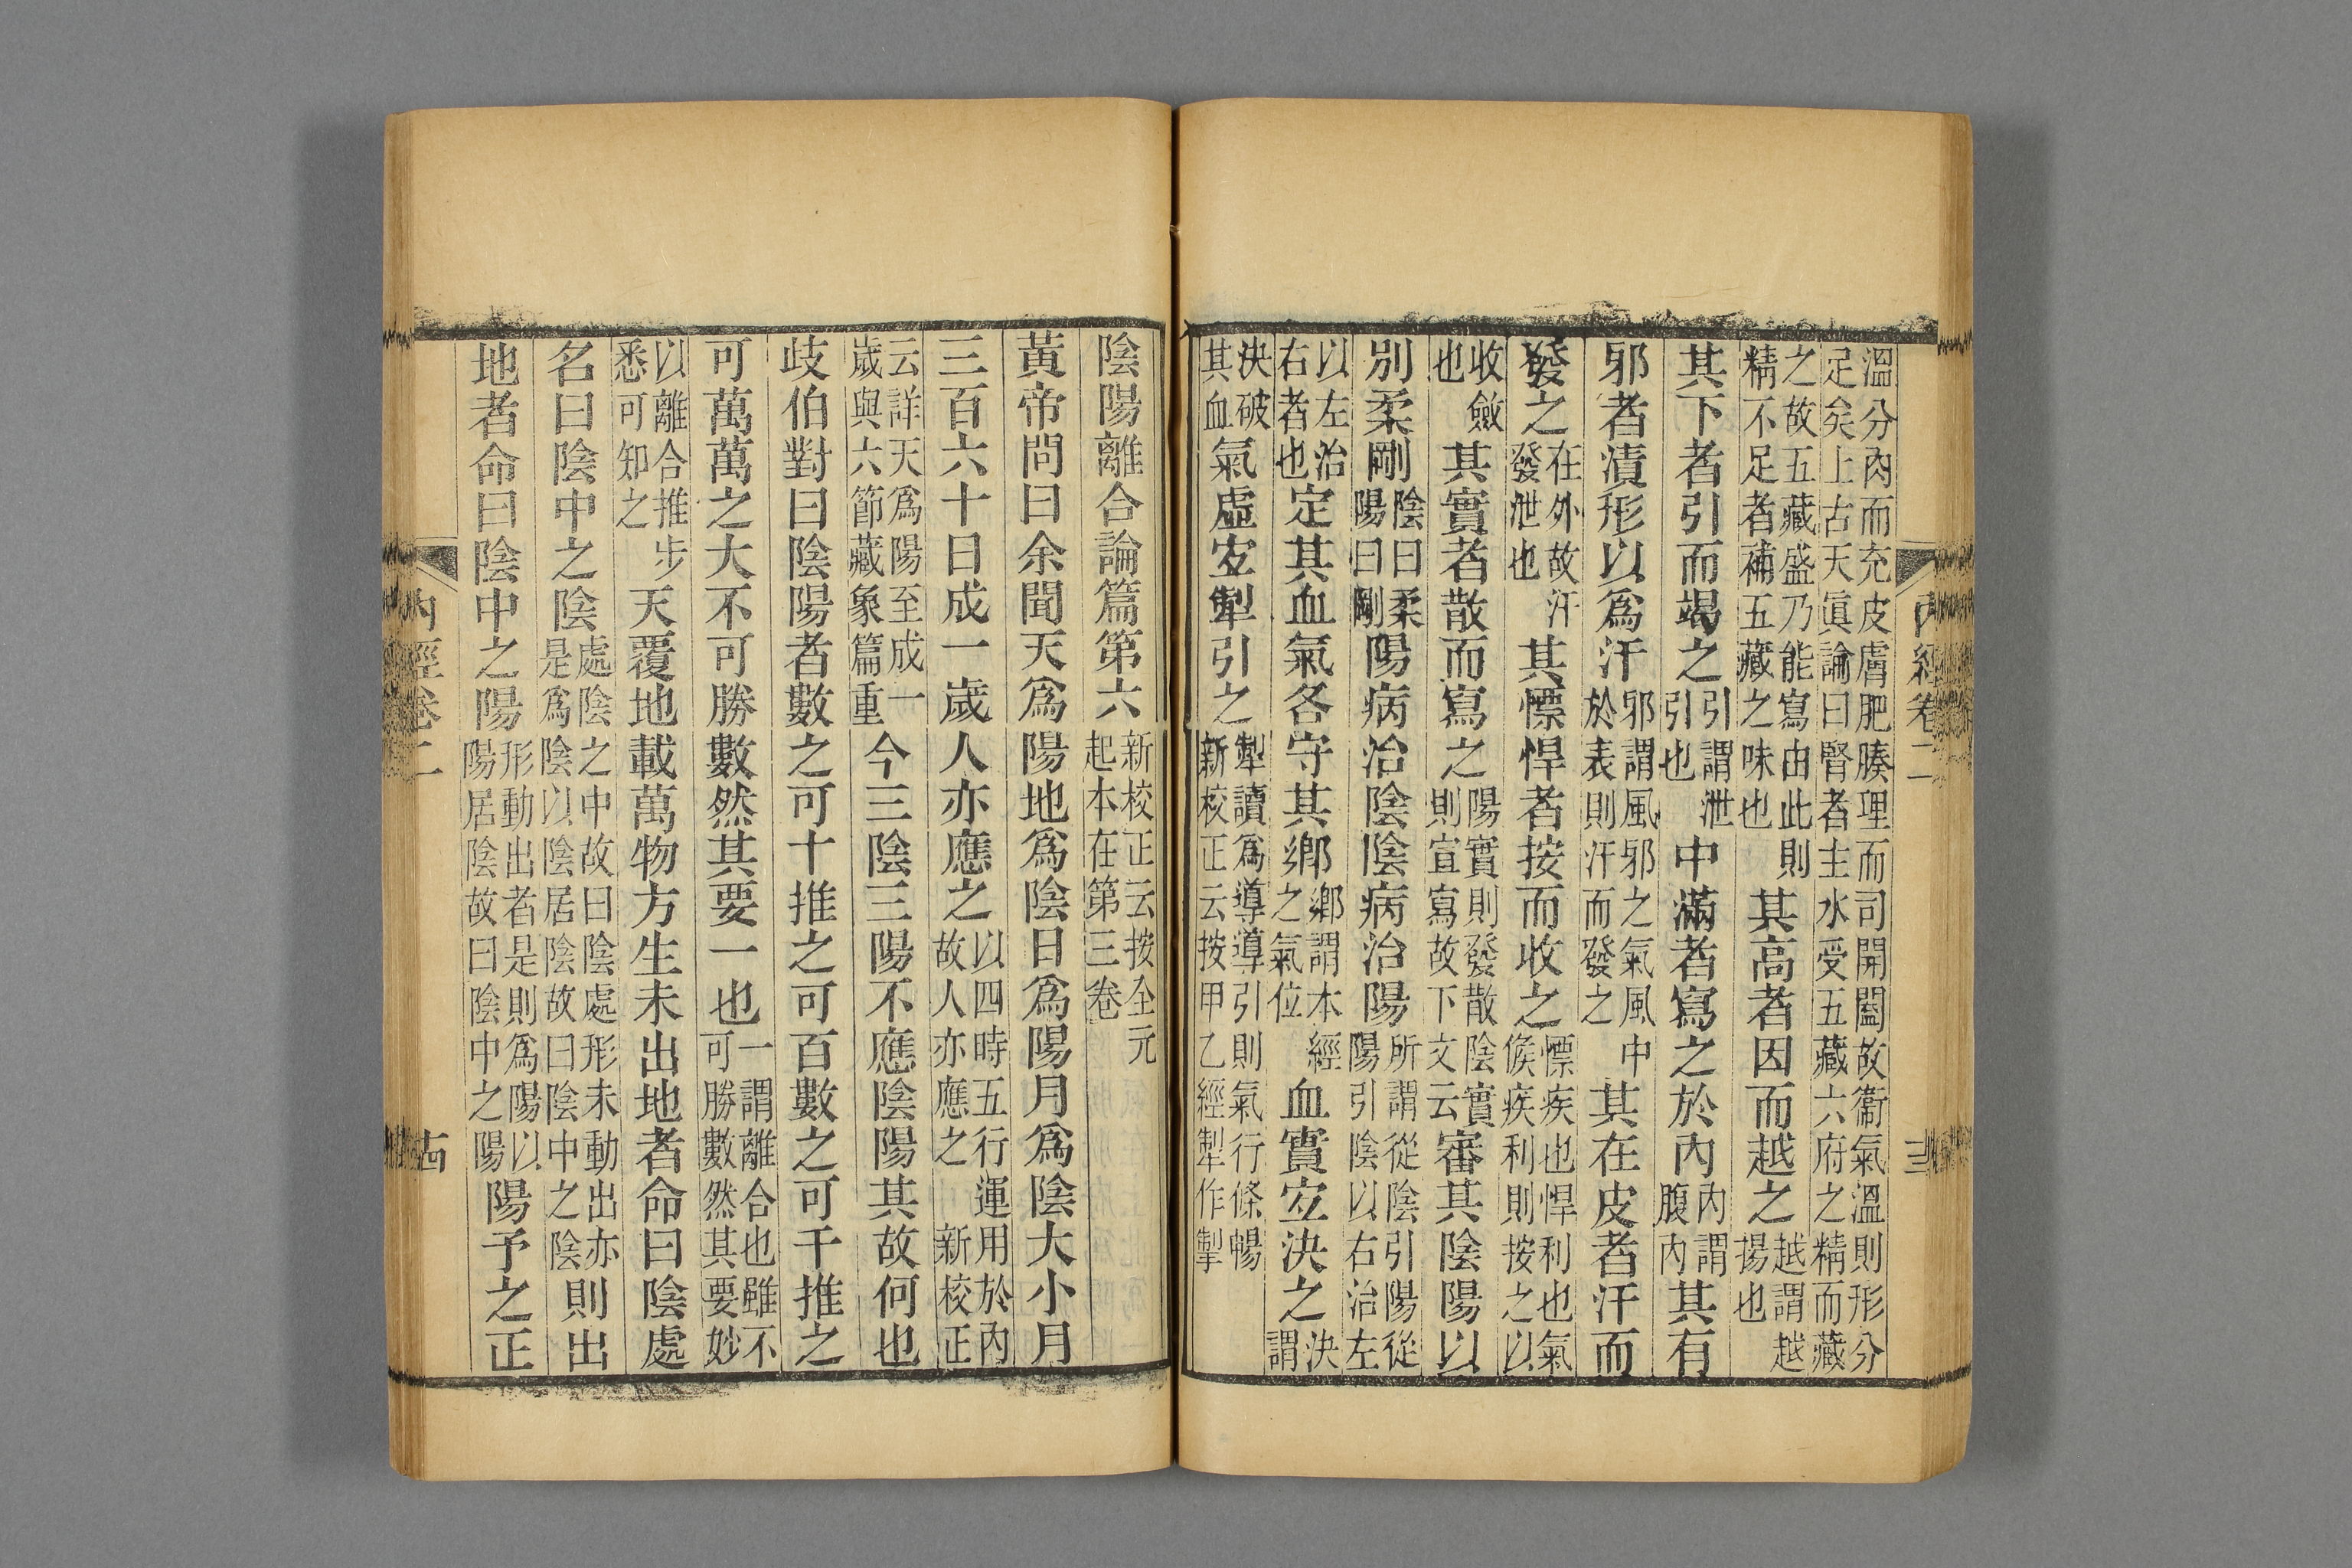 內經卷二 十三
溫分肉而充皮膚肥腠理而司開闔故衞氣溫則形分
足矣上古天眞論曰腎者主水受五藏六府之精而藏
之故五藏盛乃能寫由此則精不足者補五藏之味也其高者因而越之越謂越揚也
其下者引而竭之引謂泄引也中滿者寫之於內內謂腹內其有
邪者漬形以爲汗邪謂風邪之氣風中於表則汗而發之其在皮者汗而
發之在外故汗發泄也其慓悍者按而收之慓疾也悍利也氣候疾利則按之以
收斂也其實者散而寫之陽實則發散陰實則宣寫故下文云審其陰陽以
別柔剛陰曰柔陽曰剛陽病治陰陰病治陽所謂從陰引陽從陽引陰以右治左
以左治右者也定其血氣各守其鄉鄉謂本經之氣位血實宐決之決謂
決破其血氣虛宐掣引之掣讀爲導導引則氣行條暢新校正云按甲乙經掣作掣
陰陽離合論篇第六新校正云按全元起本在第三卷
黃帝問曰余聞天爲陽地爲陰日爲陽月爲陰大小月
三百六十日成一歲人亦應之以四時五行運用於內故人亦應之 新校正
云詳天爲陽至成一歲與六節藏象篇重今三陰三陽不應陰陽其故何也
歧伯對曰陰陽者數之可十推之可百數之可千推之
可萬萬之大不可勝數然其要一也一謂離合也雖不可勝數然其要妙
以離合推步悉可知之天覆地載萬物方生未出地者命曰陰處
名曰陰中之陰處陰之中故曰陰處形未動出亦是爲陰以陰居陰故曰陰中之陰則出
地者命曰陰中之陽形動出者是則爲陽以陽居陰故曰陰中之陽陽予之正
內經卷二 十四